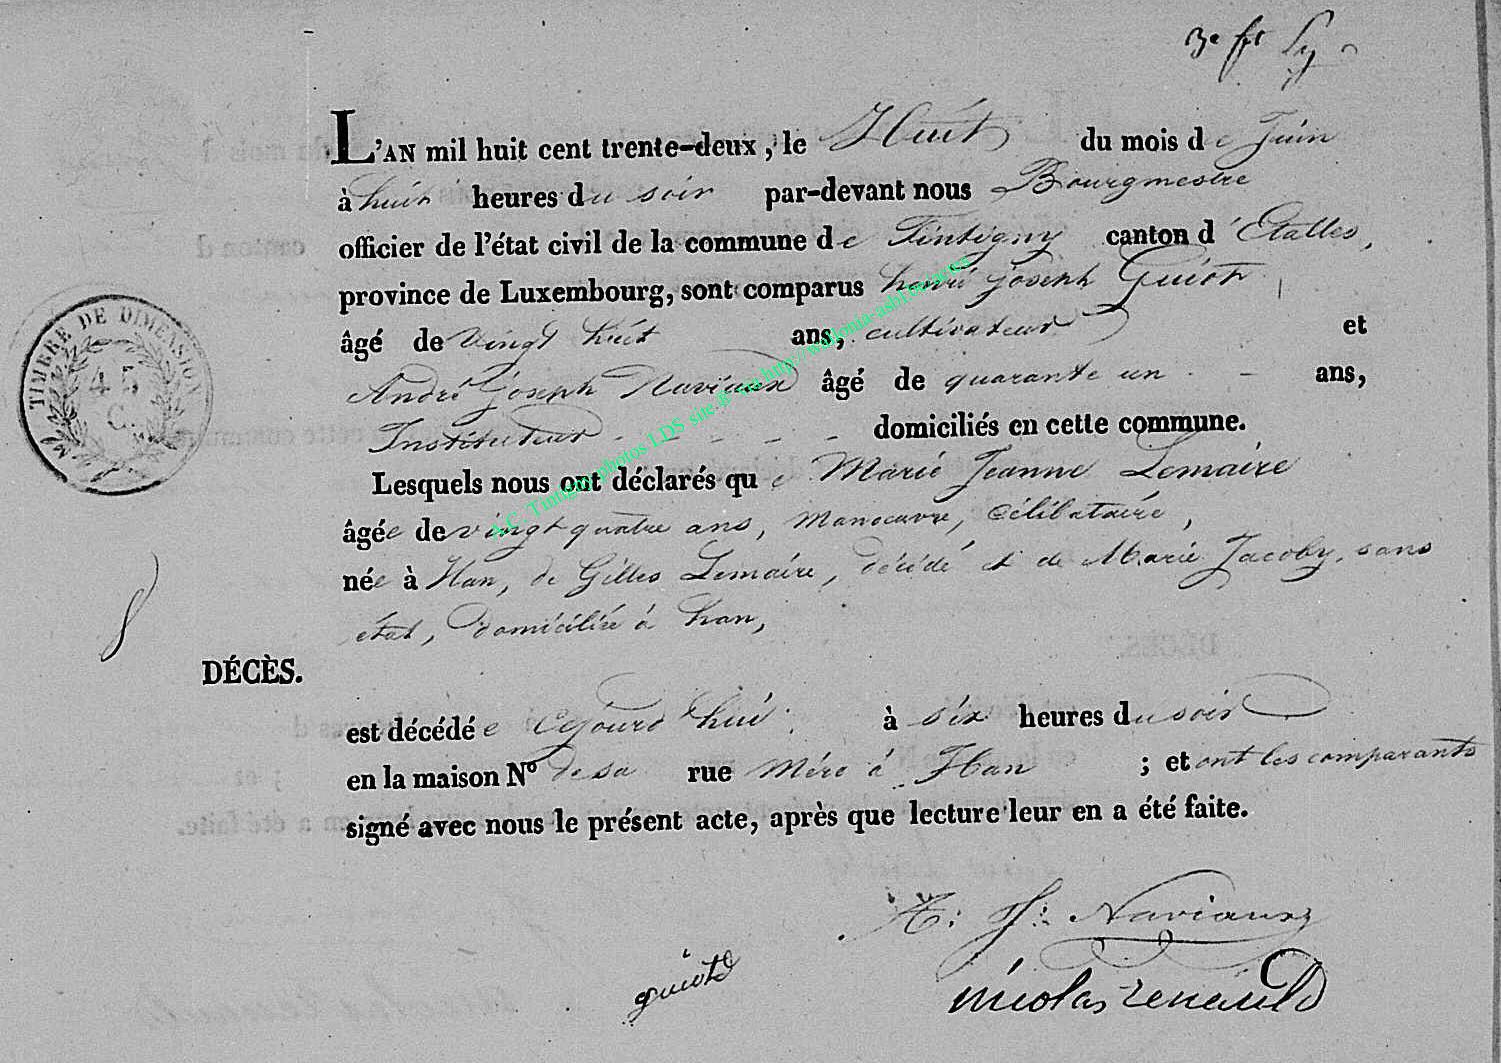 3e
L'AN mil huit cent trente-deux, le Huit du mois de Juin
à huit heures du soir par-devant nous Bourgmestre
officier de l'état civil de la commune de Tintigny canton d'Etalles,
province de Luxembourg, sont comparus henri joseph Guiot
âgé de vingt huit ans, cultivateur et
André joseph Naviaux âgé de quarante un - ans,
Instituteur - - - - - domiciliés en cette commune.
Lesquels nous ont déclarés que Marie Jeanne Lemaire
âgée de vingt quatre ans, manoeuvre, célibataire,
née à Han, de Gilles Lemaire, décédé et de Marie Jacoby, sans
état, domiciliée à han,
DÉCÈS.
est décédée cejourd'hui à six heures du soir
en la maison No de sa rue Mère à Han ; et ont les comparants
signé avec nous le présent acte, après que lecture leur en a été faite.
A: J: Naviaux
guiot
nicolas renauld
TIMBRE DE DIMENSION
45
C.
8
A.C. Tintigny photos LDS site & via http://wallonia-asbl.be/actes